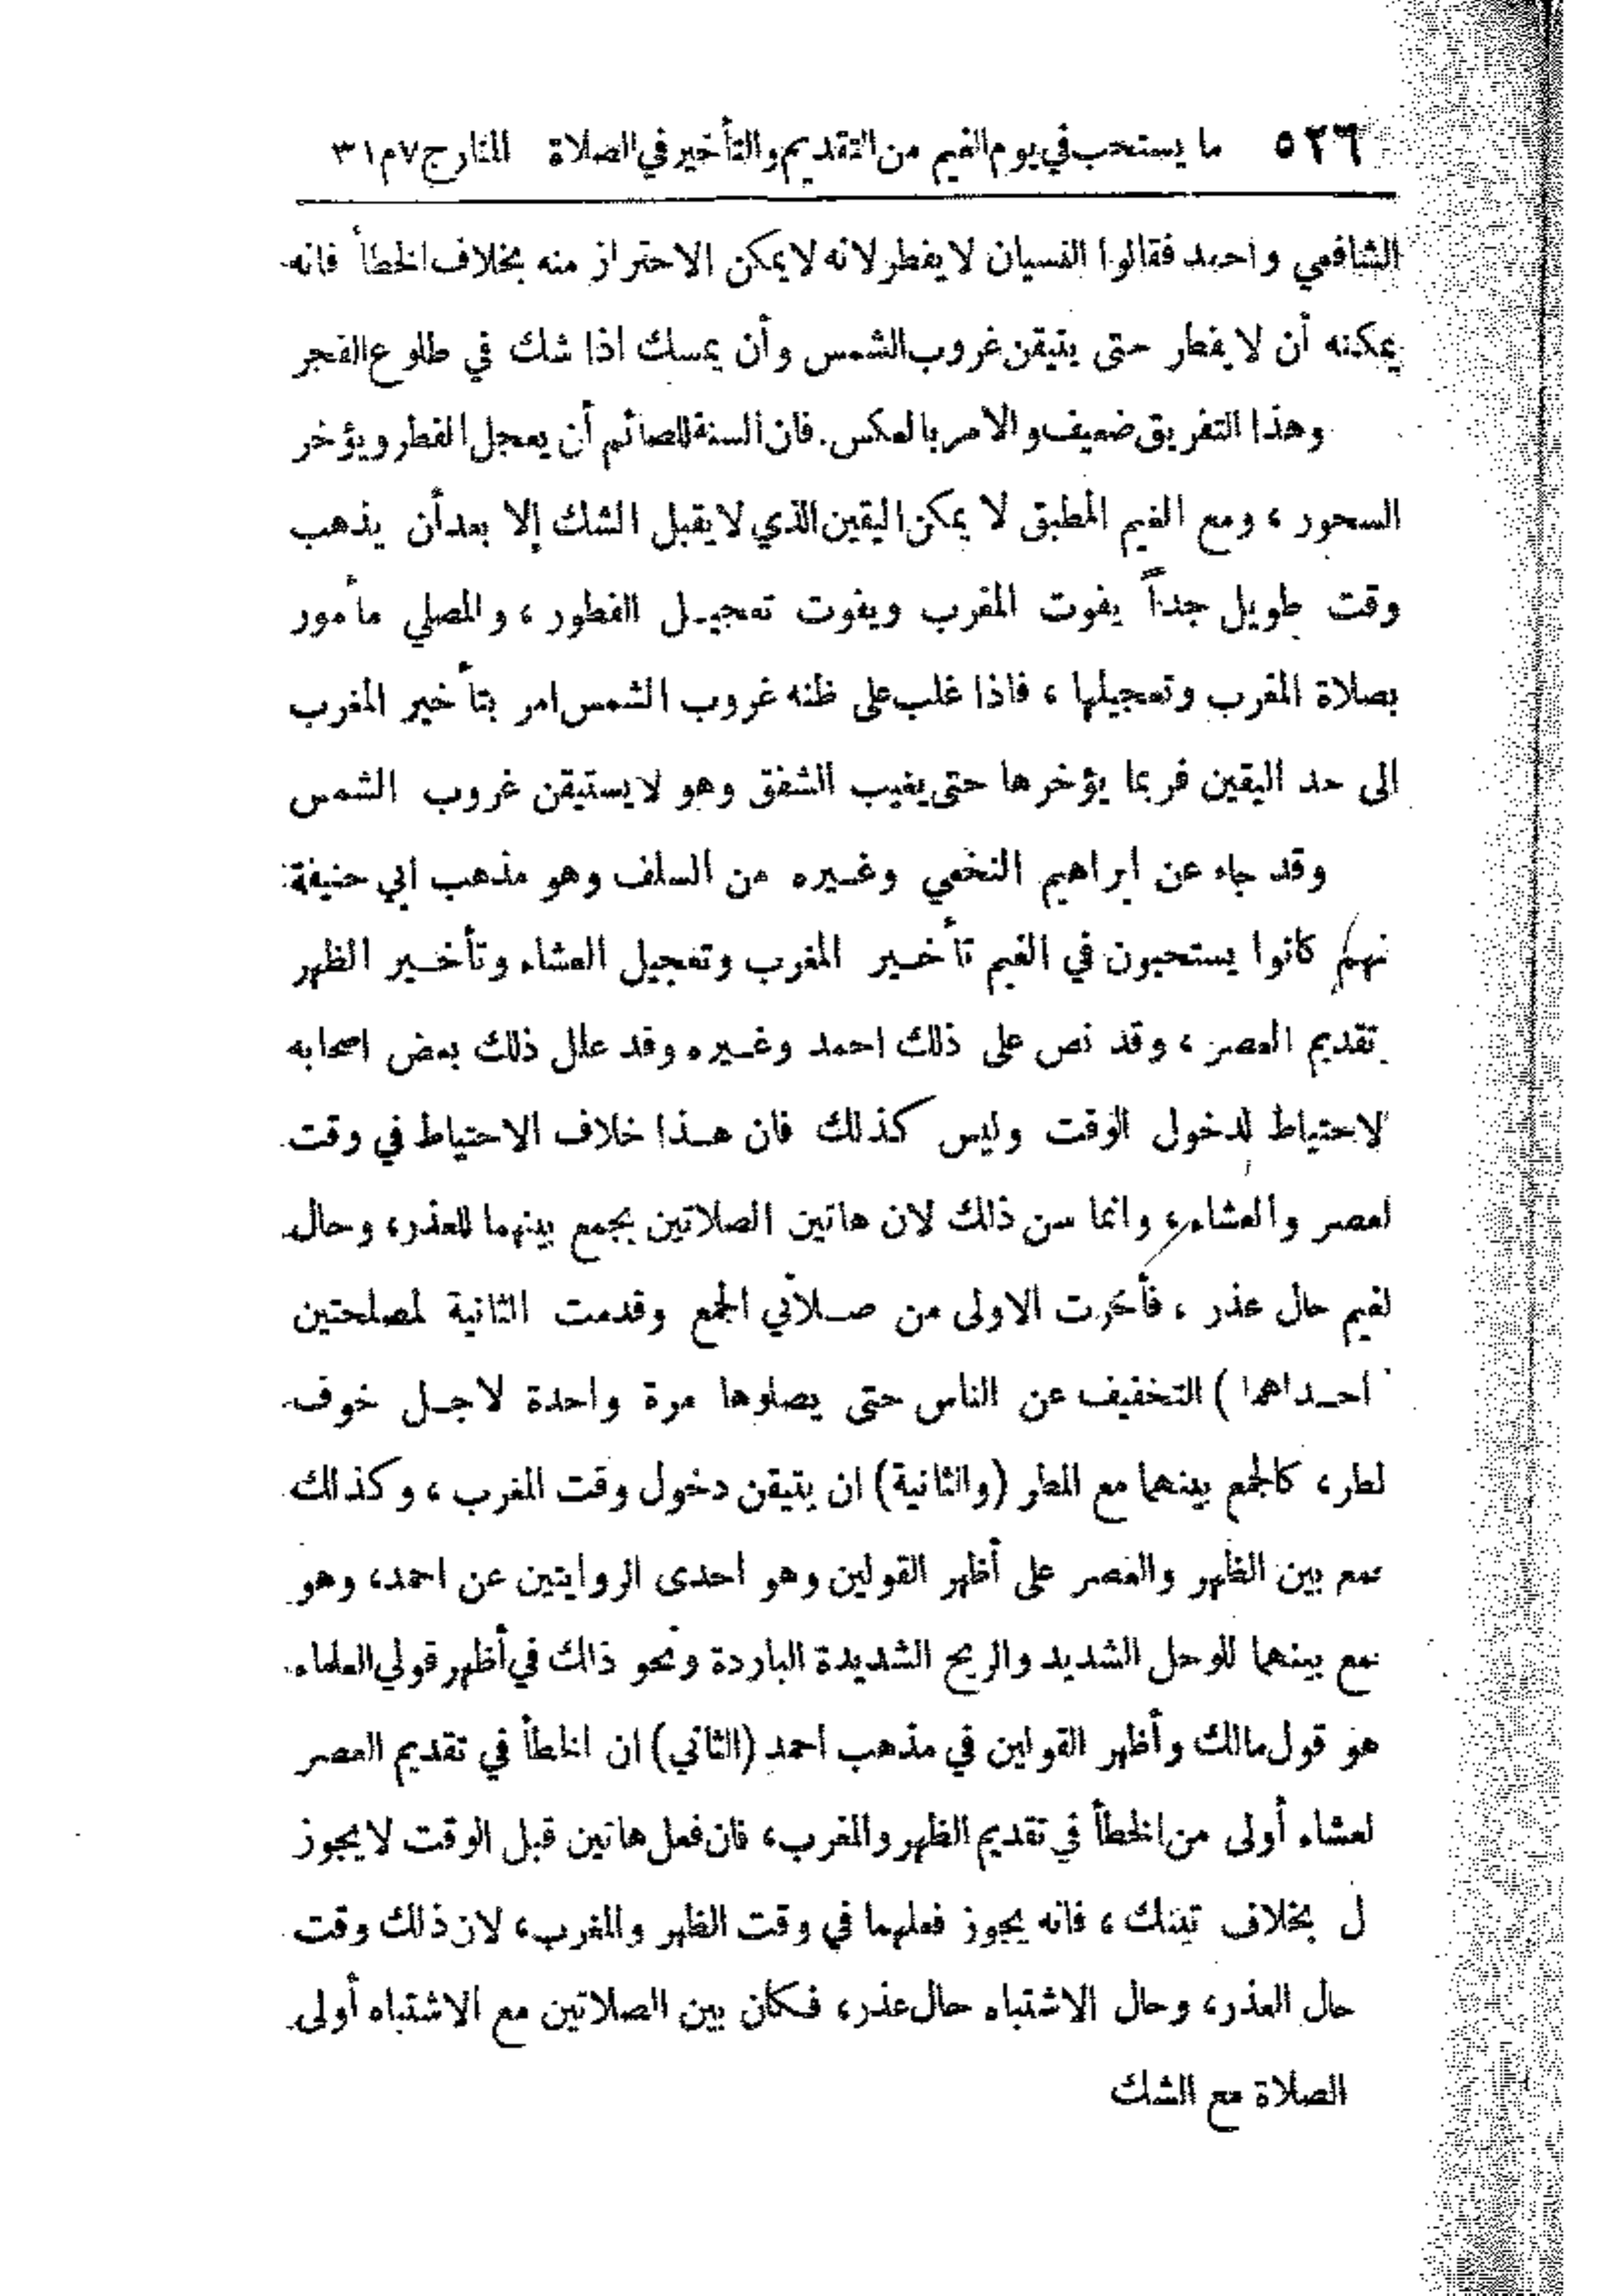 ٥٢٦ ما يستحب في يوم الغيم من التقديم والتأخير في الصلاة المنار ج٧م٣١
الشافعي واحمد فقالوا النسيان لا يفطر لانه لا يمكن الاحتراز منه بخلاف الخطأ فانه
يمكنه أن لا يفطر حتى يتيقن غروب الشمس وأن يمسك اذا شك في طلوع الفجر
وهذا التفريق ضعيف والامر بالعكس. فان السنة للصائم أن يعجل الفطر ويؤخر
السحور ، ومع الغيم المطبق لا يمكن اليقين الذي لا يقبل الشك إلا بعد أن يذهب
وقت طويل جداً يفوت المغرب ويفوت تعجيل الفطور ، والمصلي مأمور
بصلاة المغرب وتعجيلها ، فاذا غلب على ظنه غروب الشمس امر بتأخير المغرب
الى حد اليقين فربما يؤخرها حتى يغيب الشفق وهو لا يستيقن غروب الشمس
وقد جاء عن ابراهيم النخعي وغيره من السلف وهو مذهب ابي حنيفة
نهم كانوا يستحبون في الغيم تأخير المغرب وتعجيل العشاء وتأخير الظهر
تقديم العصر ، وقد نص على ذلك احمد وغيره وقد علل ذلك بعض اصحابه
لاحتياط لدخول الوقت وليس كذلك فان هذا خلاف الاحتياط في وقت
لعصر والعشاء، وانما سن ذلك لان هاتين الصلاتين يجمع بينهما للعذر، وحال
لغيم حال عذر ، فأخرت الاولى من صلاتي الجمع وقدمت الثانية لمصلحتين
احداهما ) التخفيف عن الناس حتى يصلوها مرة واحدة لاجل خوف
لطر، كالجمع بينهما مع المطر (والثانية) ان يتيقن دخول وقت المغرب ، وكذلك
مع بين الظهر والعصر على أظهر القولين وهو احدى الروايتين عن احمد، وهو
مع بينهما للوحل الشديد والريح الشديدة الباردة ونحو ذلك في أظهر قولي العلماء
هو قول مالك وأظهر القولين في مذهب احمد (الثاني) ان الخطأ في تقديم العصر
لعشاء أولى من الخطأ في تقديم الظهر والمغرب، فان فعل هاتين قبل الوقت لا يجوز
ل بخلاف تينك ، فانه يجوز فعلهما في وقت الظهر والمغرب، لان ذلك وقت
حال العذر، وحال الاشتباه حال عذر، فكان بين الصلاتين مع الاشتباه أولى
الصلاة مع الشك